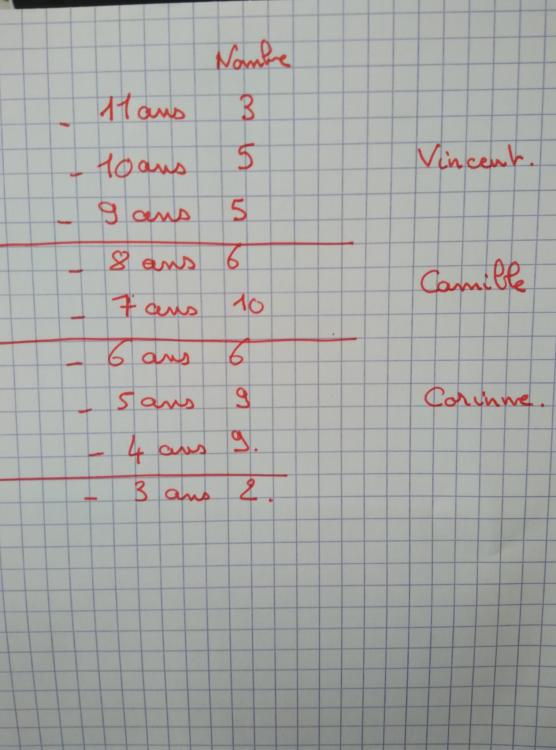 Nombre
- 11 ans 3
- 10 ans 5 Vincent.
- 9 ans 5
- 8 ans 6
Camille
- 7 ans 10
- 6 ans 6
- 5 ans 9 Corinne.
- 4 ans 9.
- 3 ans 2.